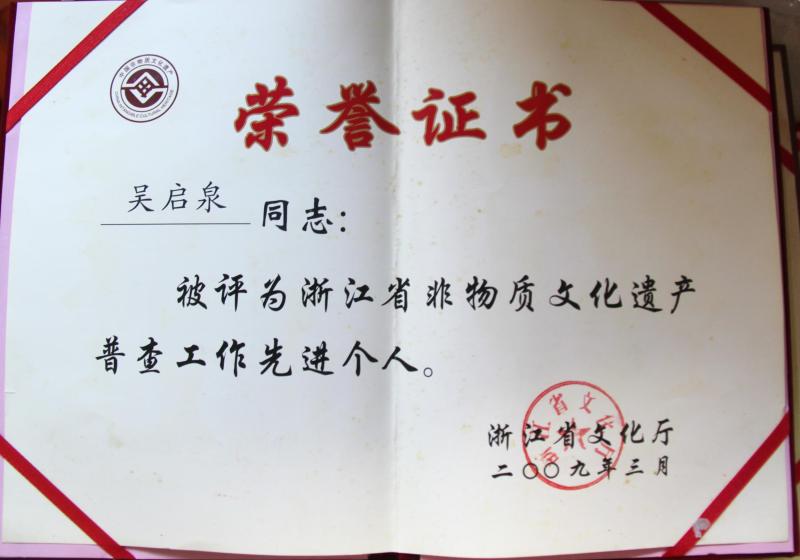 中国非物质文化遗产
CHINA INTANGIBLE CULTURAL HERITAGE
荣誉证书
吴启泉 同志：
被评为浙江省非物质文化遗产
普查工作先进个人。
浙江省文化厅
浙江省文化厅
二〇〇九年三月